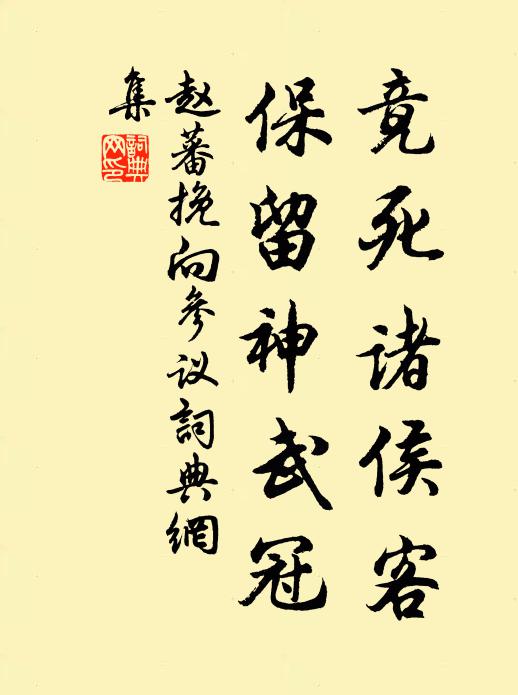 竟死诸侯客
保留神武冠
赵蕃挽向参议词典網
集
詞典
网印